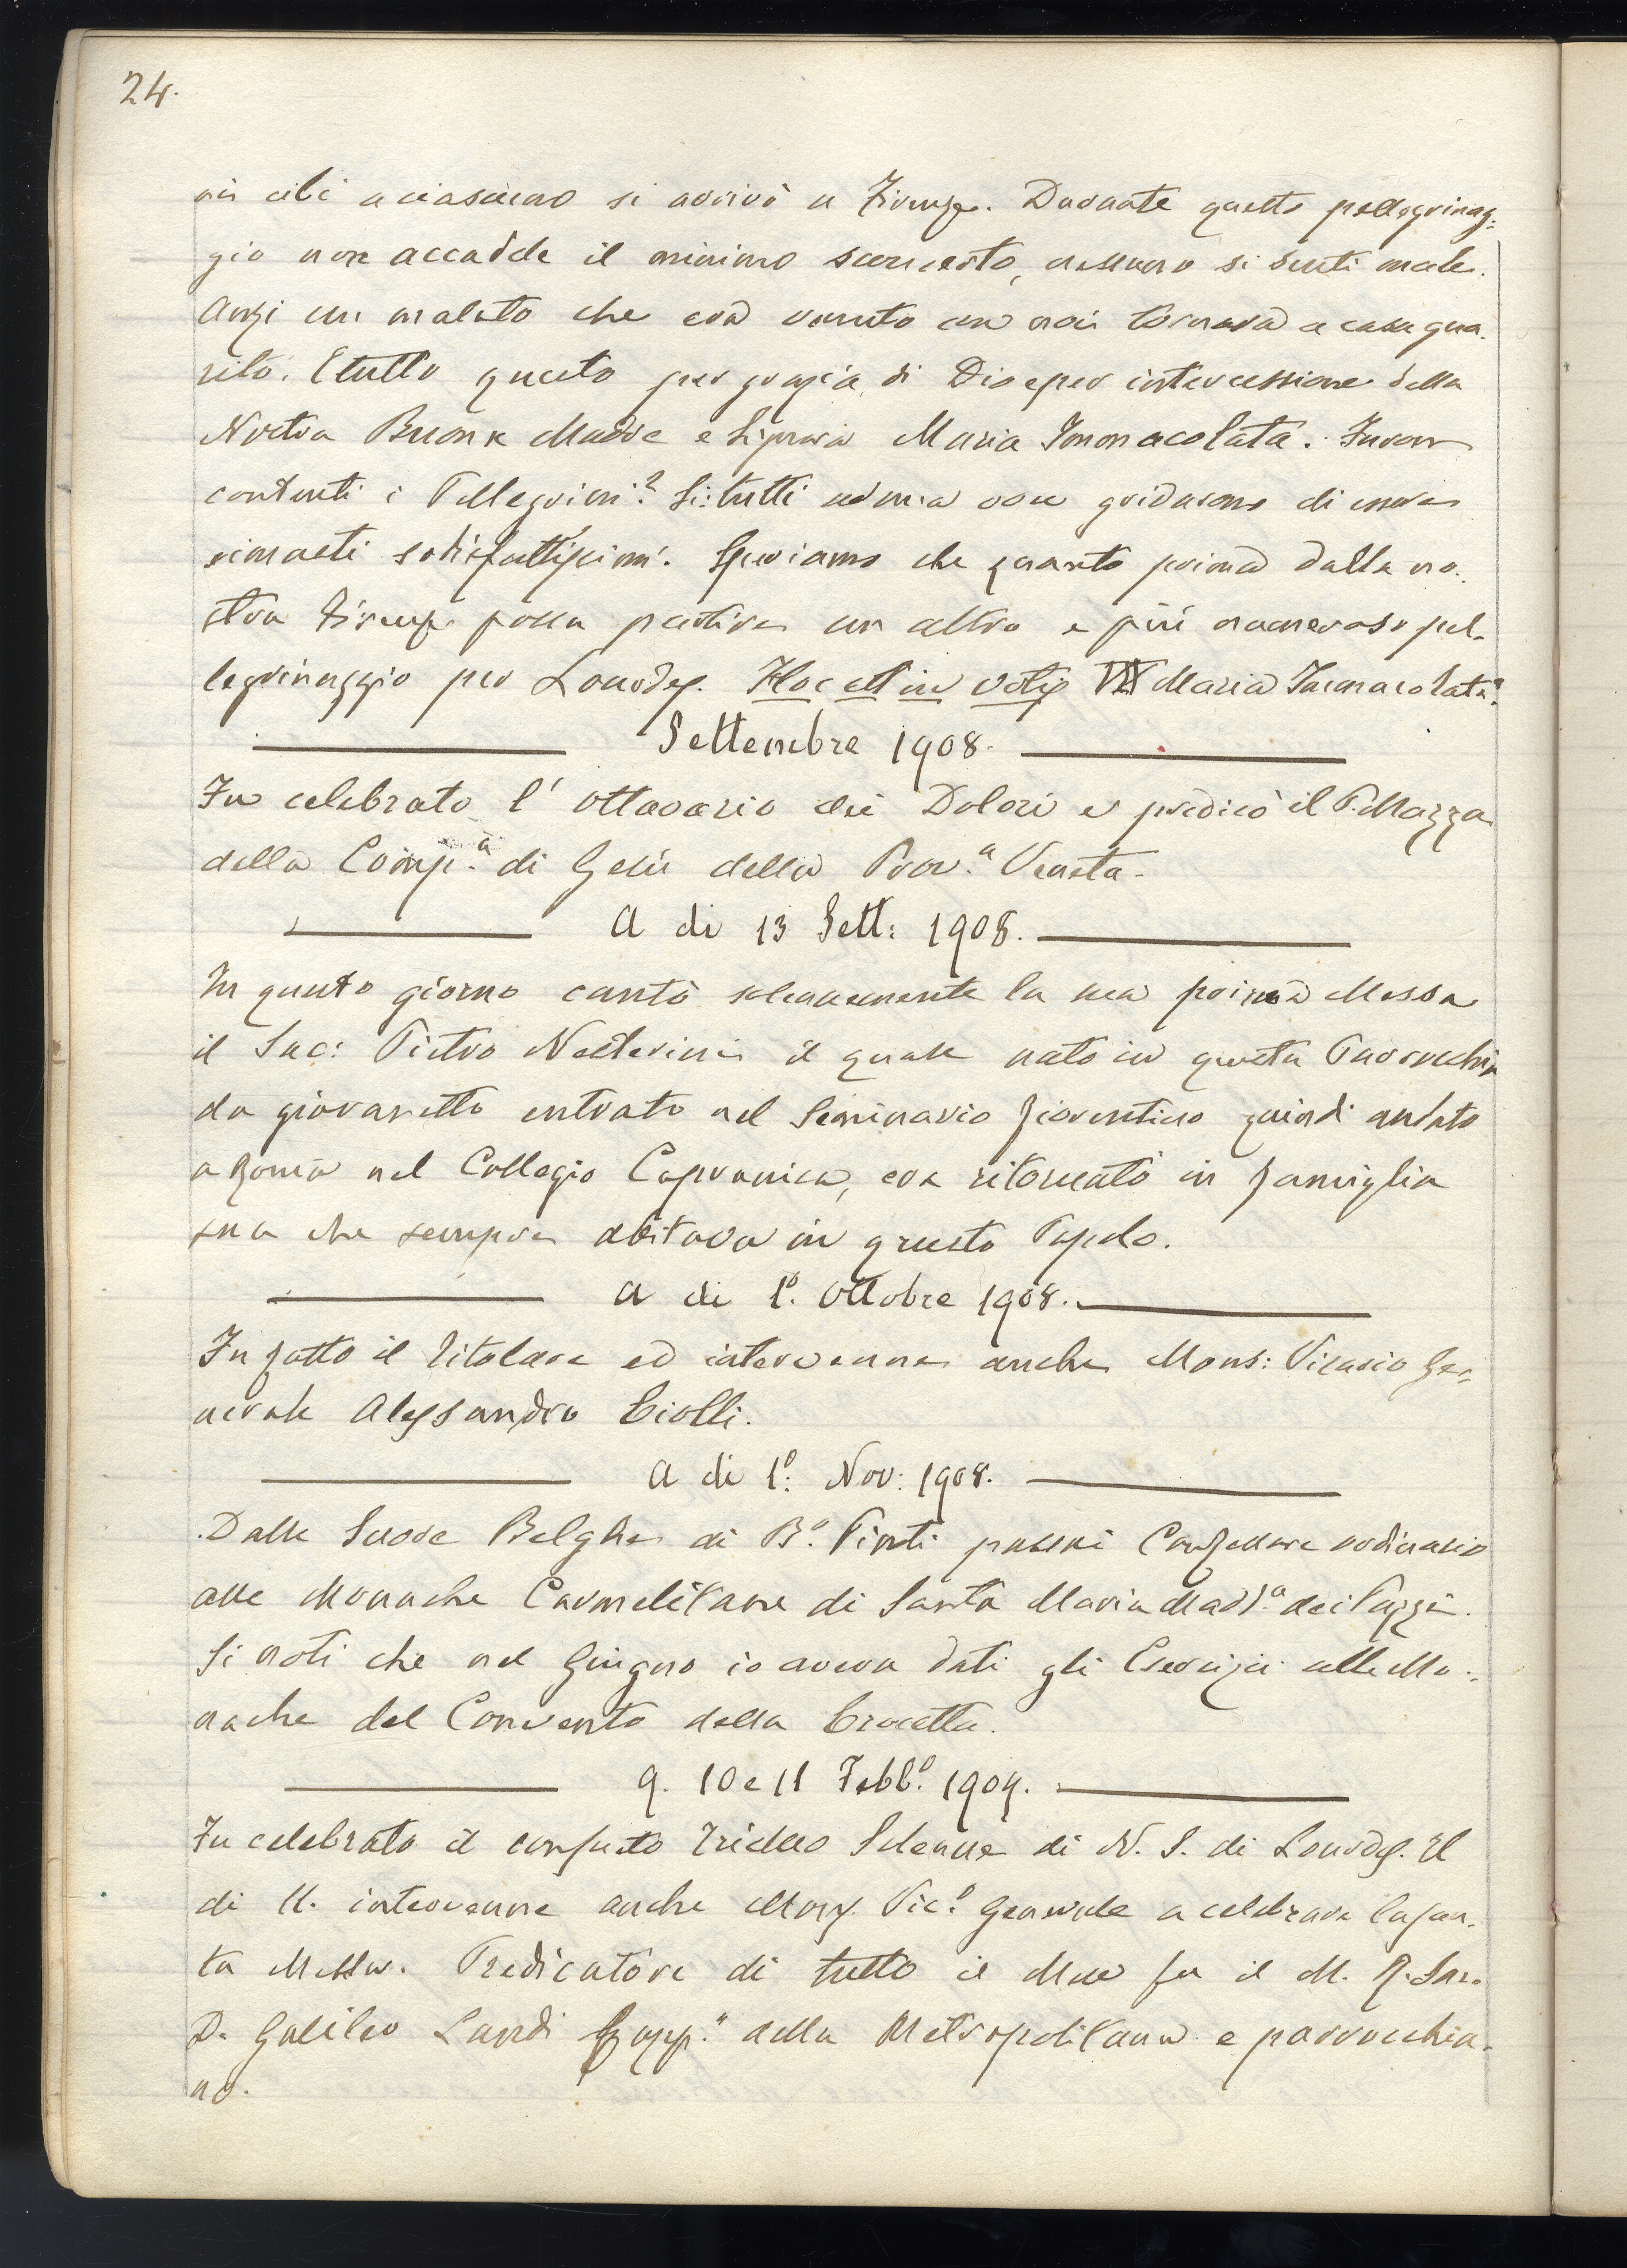 24.
cibi a ciascuno si arrivò a Firenze. Durante questo pellegrinag-
gio non accadde il minimo sconcerto, nessuno si sentì male.
Anzi un malato che era venuto con noi tornava a casa gua-
rito. E tutto questo per grazia di Dio e per intercessione della
Nostra Buona Madre e Signora Maria Immacolata. Furon
contenti i Pellegrini? Si: tutti ad una voce gridarono di essere
rimasti sodisfattissimi. Speriamo che quanto prima dalla no-
stra Firenze possa partire un altro e più numeroso pel-
legrinaggio per Lourdes. Hoc est in votis Maria Immacolata.
Settembre 1908.
Fu celebrato l'ottavario dei Dolori e predicò il P. Mazza
della Comp.a di Gesù della Prov.a Veneta.
A di 13 Sett: 1908.
In questo giorno cantò solennemente la sua prima Messa
il Sac: Pietro il quale nato in questa Parrocchia
da giovanetto entrato nel Seminario fiorentino quindi andato
a Roma nel Collegio Capranica, era ritornato in famiglia
sua che sempre abitava in questo Popolo.
A di 1o. Ottobre 1908.
Fu fatto il Titolare ed intervenne anche Mons: Vicario Ge-
nerale Alessandro Ciolli.
A di 1o: Nov: 1908.
Dalle Suore Belghe di B.o Pinti passai Confessore ordinario
alle Monache Carmelitane di Santa Maria Madd.a dei Pazzi.
Si noti che nel Giugno io aveva dati gli Esercizi alle Mo-
nache del Convento della Crocetta.
9. 10 e 11 Febb.o 1909.
Fu celebrato il consueto Triduo Solenne di N. S. di Lourdes. Il
di 11. intervenne anche Mons. Vic.o Generale a celebrare la san-
ta Messa. Predicatore di tutto il Mese fu il M. R. Sac.
D. Galileo Landi Capp.o della Metropolitana e parrocchia-
no.